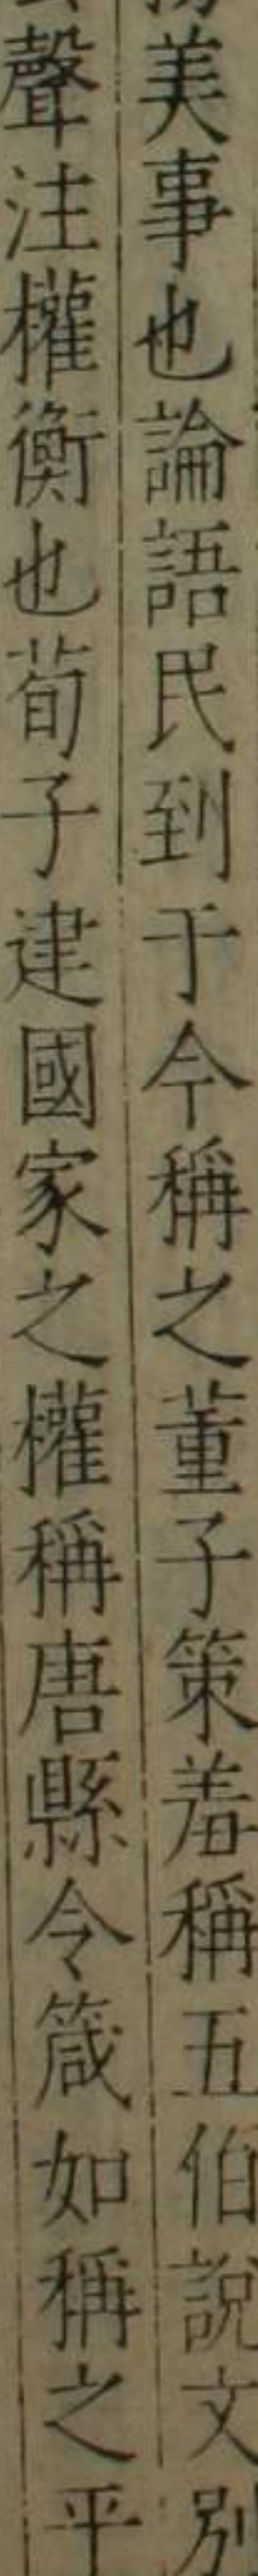 美事也論語民到于今稱之董子策羞稱五伯說文別
聲注權衡也荀子建國家之權稱唐縣令箴如稱之平